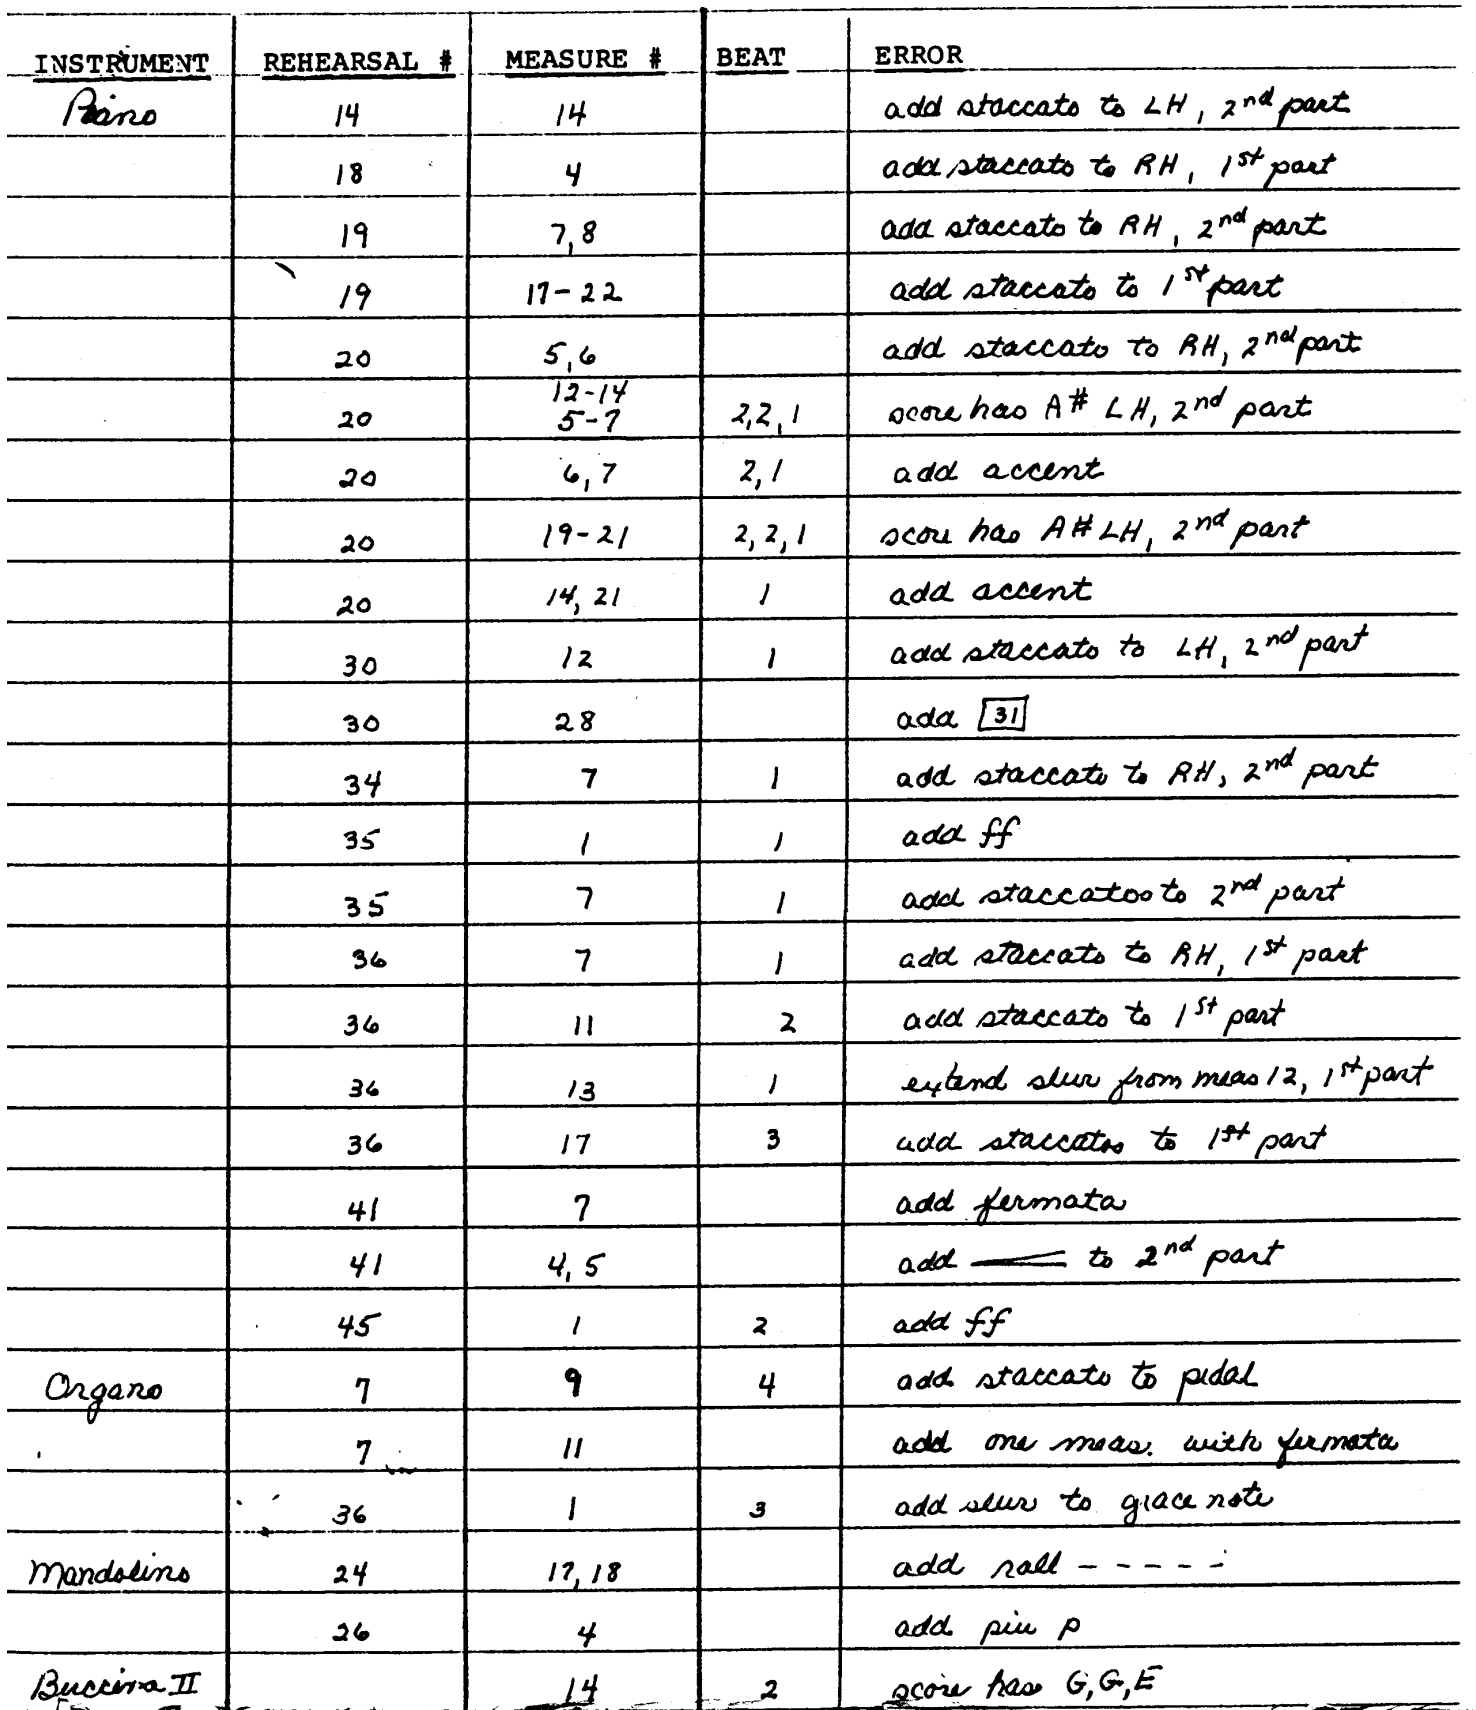 INSTRUMENT REHEARSAL # MEASURE # BEAT ERROR
Piano 14 14 add staccato to LH, 2nd part
18 4 add staccato to RH, 1st part
19 7,8 add staccato to RH, 2nd part
19 17-22 add staccato to 1st part
20 5,6 add staccato to RH, 2nd part
12-14
20 5-7 2,2,1 score has A# LH, 2nd part
20 6,7 2,1 add accent
20 19-21 2,2,1 score has A# LH, 2nd part
20 14,21 1 add accent
30 12 1 add staccato to LH, 2nd part
30 28 add 31
34 7 1 add staccato to RH, 2nd part
35 1 1 add ff
35 7 1 add staccatos to 2nd part
36 7 1 add staccato to RH, 1st part
36 11 2 add staccato to 1st part
36 13 1 extend slur from meas 12, 1st part
36 17 3 add staccatos to 1st part
41 7 add fermata
41 4,5 add to 2nd part
45 1 2 add ff
Organo 7 9 4 add staccato to pedal
7 11 add one meas. with fermata
36 1 3 add slur to grace note
Mandolino 24 17,18 add rall - - - - -
26 4 add piu p
Buccina II 14 2 score has G,G,E